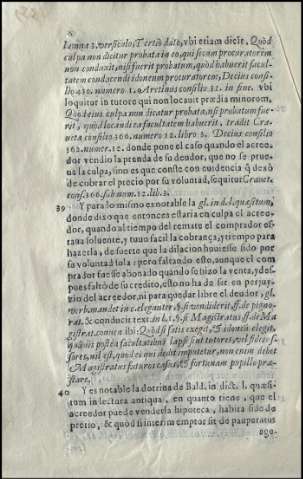 lumna 2. versiculo, Tertio dato, vbi etiam dicit, Quòd
culpa non dicitur probata in eo, qui secum procuratorem
non conduxit, nisi fuerit probatum, quòd habuerit facul-
tatem conducendi idoneum procuratorem, Decius consilio
430. numero 1. consilio 32. in fine. Vbi
loquitur in tutore qui non locauit prædia minorum,
Quòd eius culpa non dicatur probata, nisi probatum fue-
rit, quòd locandi ea facultatem habuerit, tradit Cra-
ueta consilio 366. numero 12. libro 2. Decius consilio
362. numer. 12. donde pone el caso quando el acree-
dor vendio la prenda de su deudor, que no se prue-
ua la culpa, sino es que conste con euidencia q̃ dexò
de cobrar el precio por su voluntad, sequitur Craueta,
cons. 366. sub num. 12. lib. 2.
39 Y para lo mismo es notable la gl. in d. l. quæsitum,
donde dixo que entonces estaria en culpa el acree-
dor, quando al tiempo del remate el comprador es-
taua soluente, y tuuo facil la cobrança, y tiempo para
hazerla, de suerte que la dilacion huuiesse sido por
su voluntad sola: pero faltando esto, aunque el com
prador fuesse abonado quando se hizo la venta, y des
pues faltò de su credito, esto no ha de ser en perjuy-
zio del acreedor, ni para quedar libre el deudor, gl.
& conducit text. in l. 1. §. si Magistrat. ff. de Ma
gistrat. ibi: Quòd si satis exegit, & idoneū elegit,
quāuis postea facultatibus lapsi sint tutores, vel fideiusso-
res, nil est, quod ei qui dedit imputetur, non enim debet
Magistratus futuros casus, & fortunam pupillo præ-
stare.
40 Y es notable la dotrina de Bald. in dict. l. quæsi-
tum in lectura antiqua, en quanto tiene, que el
acreedor puede vender la hipoteca, habita fide de
pretio, & quòd si interim emptor sit de pauperatus